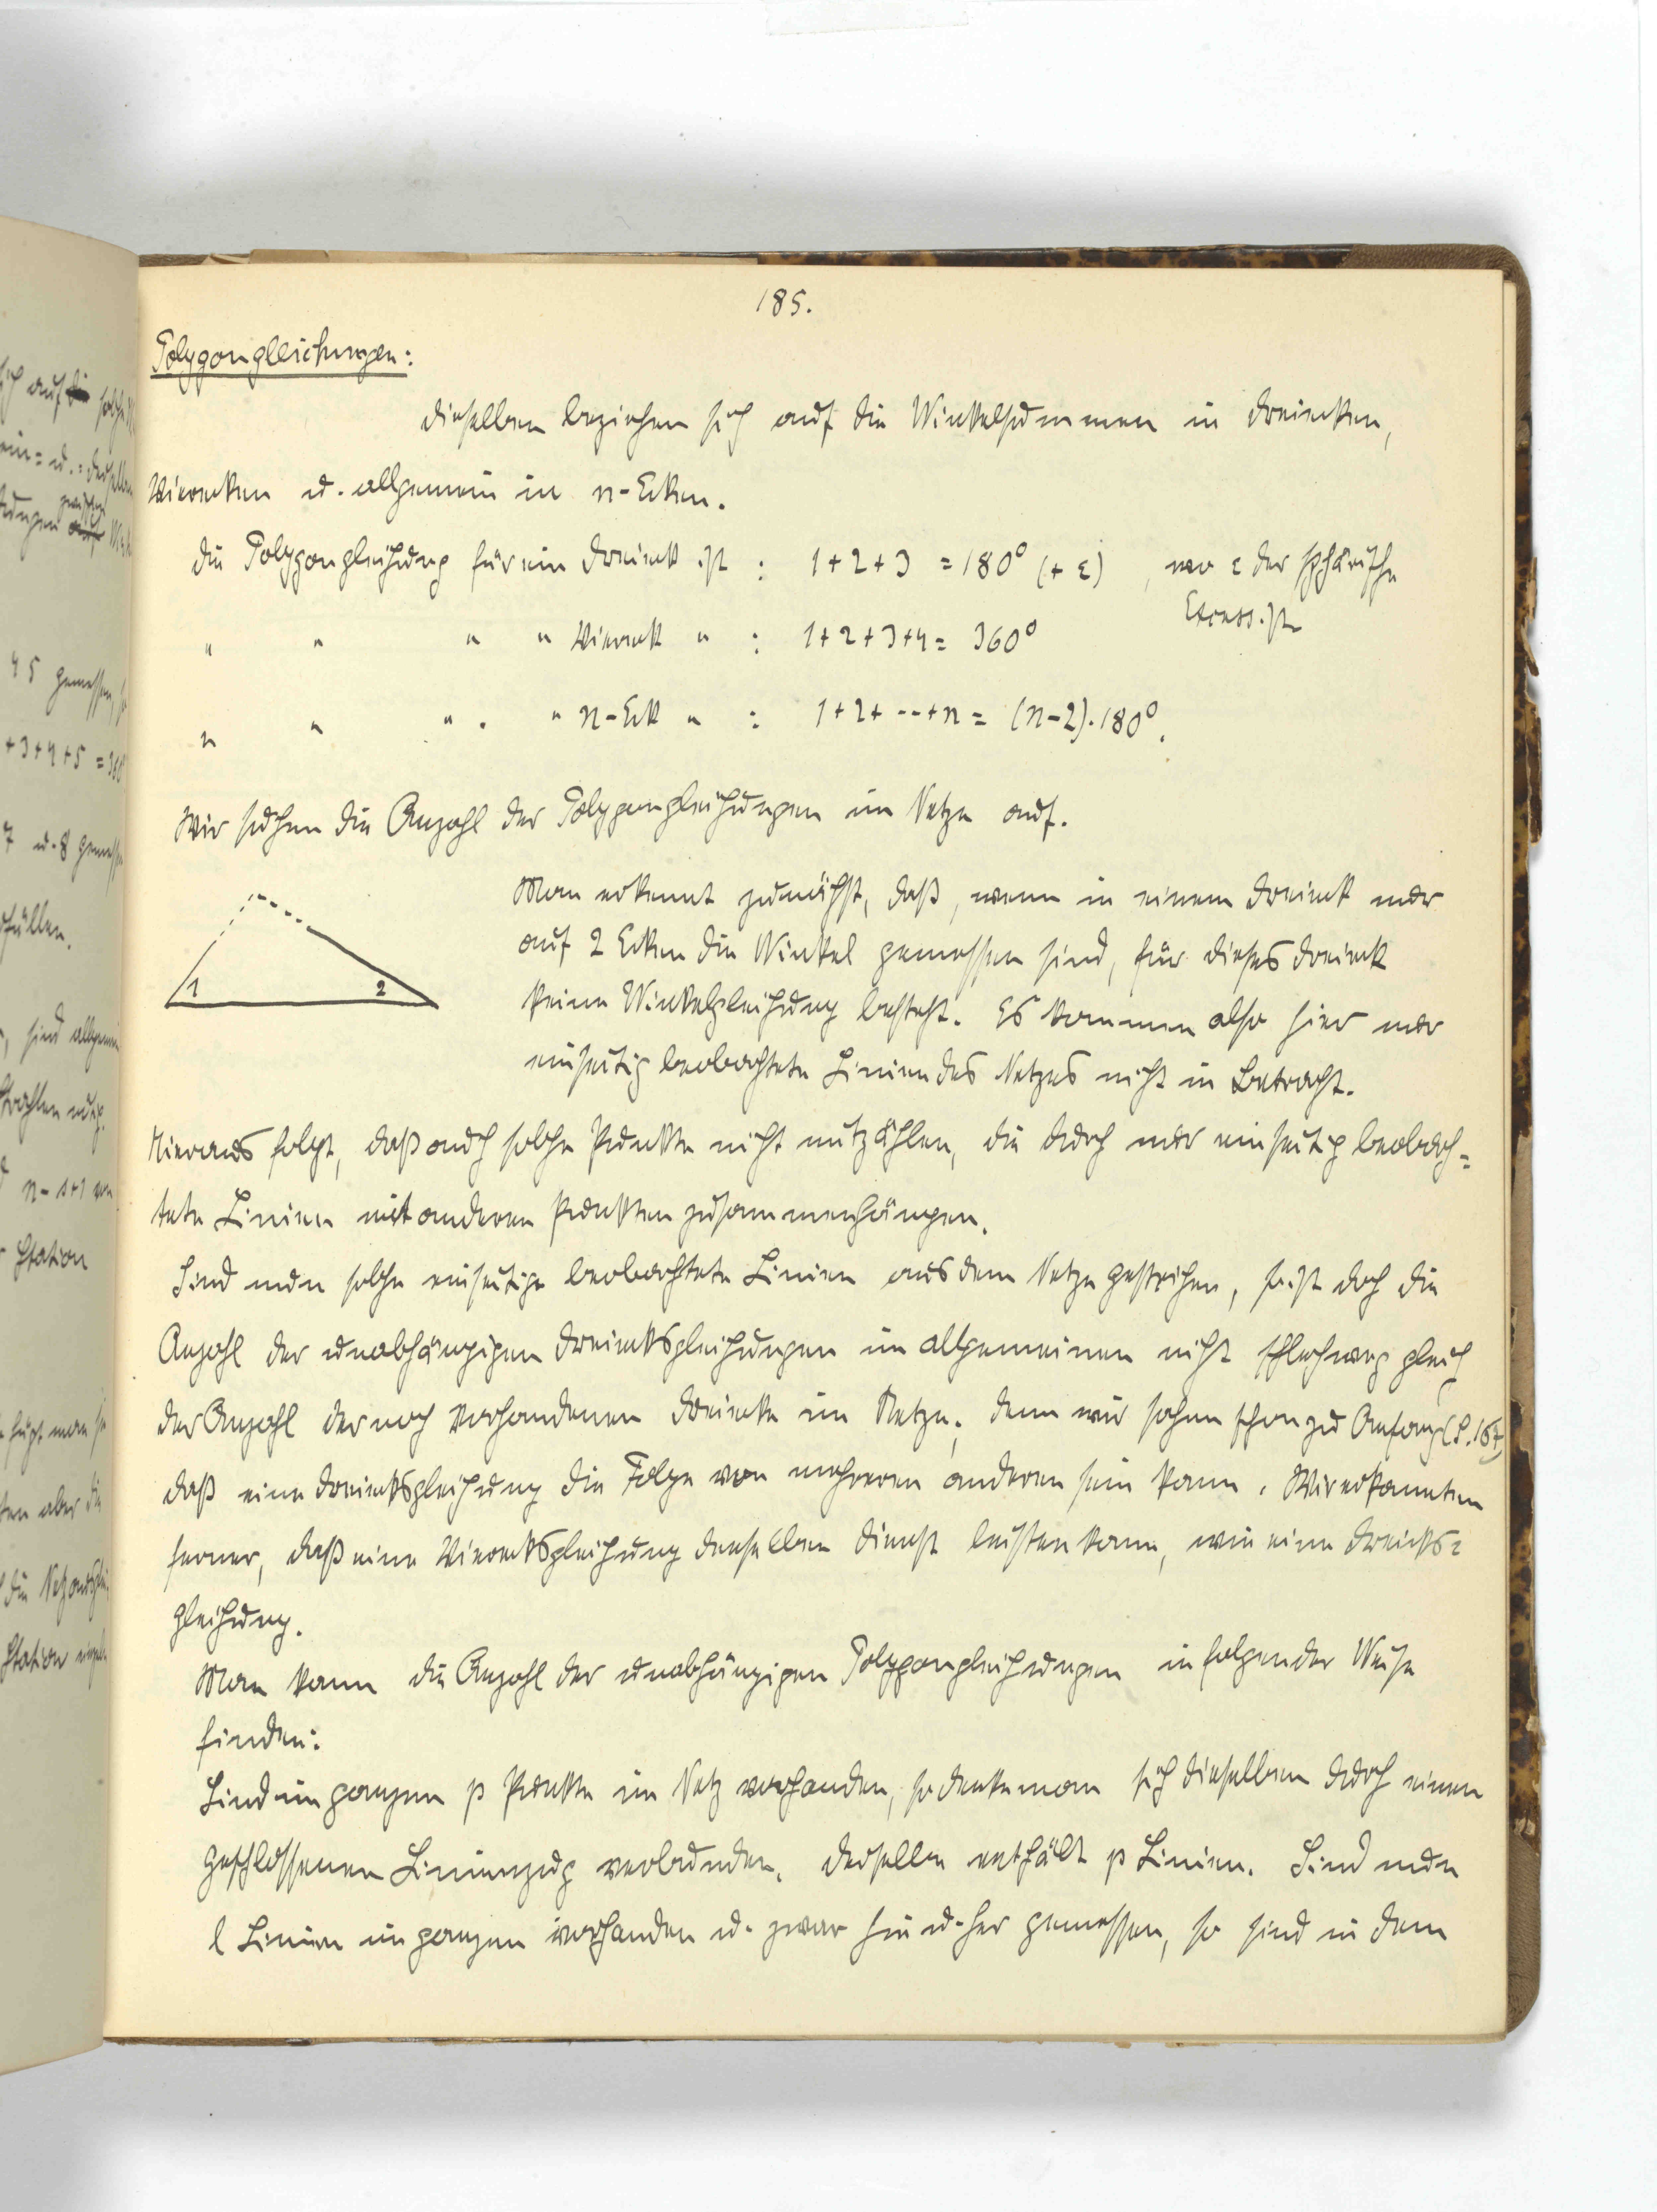 185.
Polygongleichungen:
Dieselben beziehen sich auf die Winkelsummen in Dreiecken,
Vierecken u. allgemein in n-Ecken.
Die Polygongleichung für ein Dreieck ist : 1+2+3 = 180° (+ ε) , wo ε der sphärische
Excess ist
" " " " Viereck " : 1+2+3+4 = 360°
" " " . " n-Eck " : 1+2+ --- +n = (n-2).180°.
Wir suchen die Anzahl der Polygongleichungen im Netze auf.
Man erkennt zunächst, daß, wenn in einem Dreieck nur
auf 2 Ecken die Winkel gemessen sind, für dieses Dreieck
keine Winkelgleichung besteht. Es kommen also hier nur
einseitig beobachtete Linien des Netzes nicht in Betracht.
1 2
Hieraus folgt, daß auch solche Punkte nicht mitzählen, die durch nur einseitig beobach=
tete Linien mit anderen Punkten zusammenhängen.
Sind nun solche einseitige beobachtete Linien aus dem Netze gestrichen, so ist doch die
Anzahl der unabhängigen Dreiecksgleichungen im allgemeinen nicht schlechweg gleich
der Anzahl der noch vorhandenen Dreiecke im Netze; denn wir sahen schon zu Anfang (S. 167)
daß eine Dreiecksgleichung die Folge von mehreren anderen sein kann. Wir erkannten
ferner, daß eine Vierecksgleichung denselben Dienst leisten kann, wie eine Dreiecks=
gleichung.
Man kann die Anzahl der unabhängigen Polygongleichungen in folgender Weise
finden:
Sind im ganzen p Punkte im Netz vorhanden, so denke man sich dieselben durch einen
geschlossenen Linienzug verbunden. Derselbe enthält p Linien. Sind nun
l Linien im ganzen vorhanden u. zwar hin u. her gemessen, so sind in dem
45 gemessen,
+3+4+5 = 360°
7 u. 8
füllen.
sind
n-s+1
Station